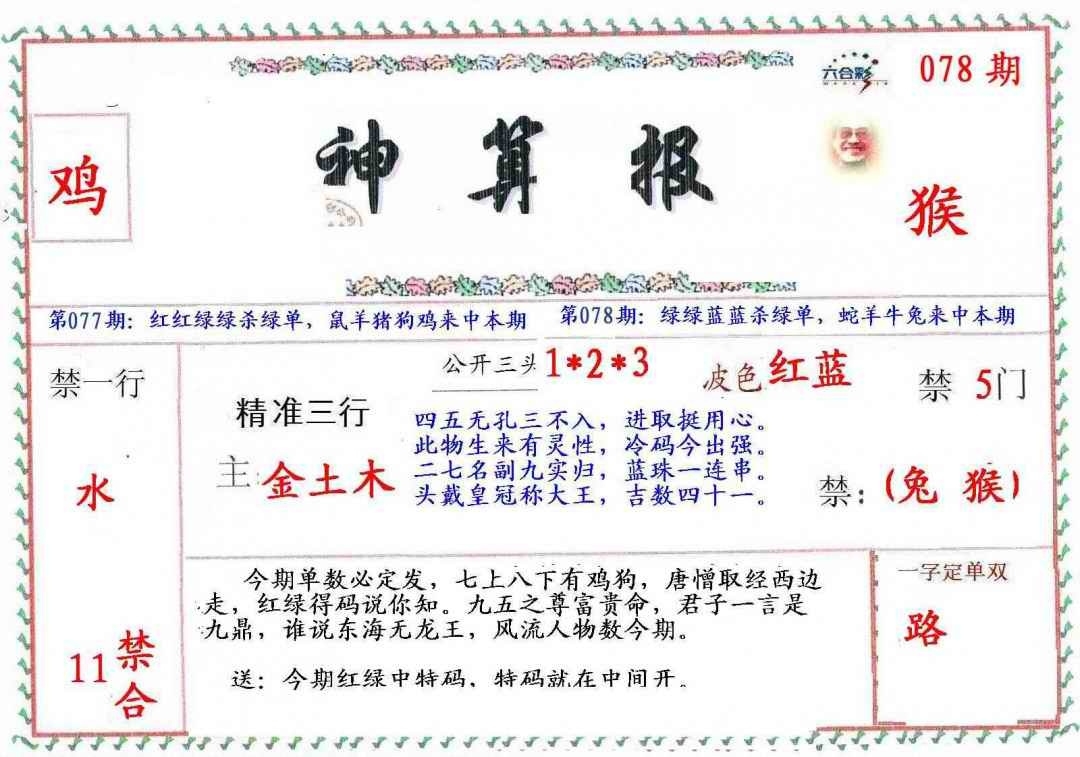 六合彩
078 期
鸡
神算报
猴
第077期：红红绿绿杀绿单，鼠羊猪狗鸡来中本期
第078期：绿绿蓝蓝杀绿单，蛇羊牛兔来中本期
禁一行
水
11禁合
精准三行
主：金土木
公开三头 1*2*3
波色红蓝
禁 5门
四五无孔三不入，进取挺用心。
此物生来有灵性，冷码今出强。
二七名副九实归，蓝珠一连串。
头戴皇冠称大王，吉数四十一。
禁：(兔 猴)
今期单数必定发，七上八下有鸡狗，唐憎取经西边
走，红绿得码说你知。九五之尊富贵命，君子一言是
九鼎，谁说东海无龙王，风流人物数今期。
送：今期红绿中特码，特码就在中间开。
一字定单双
路